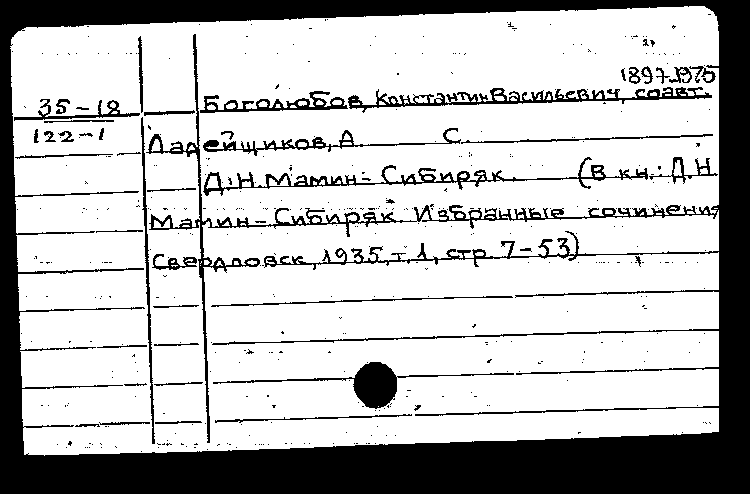 1897-1975
35-18 Боголюбов, Константин Васильевич, соавт.
122-1 Ладейщиков, А. С.
Д.Н. Мамин-Сибиряк. (В кн.: Д.Н.
Мамин-Сибиряк. Избранные сочинения
Свердловск, 1935, т. 1, стр. 7-53)